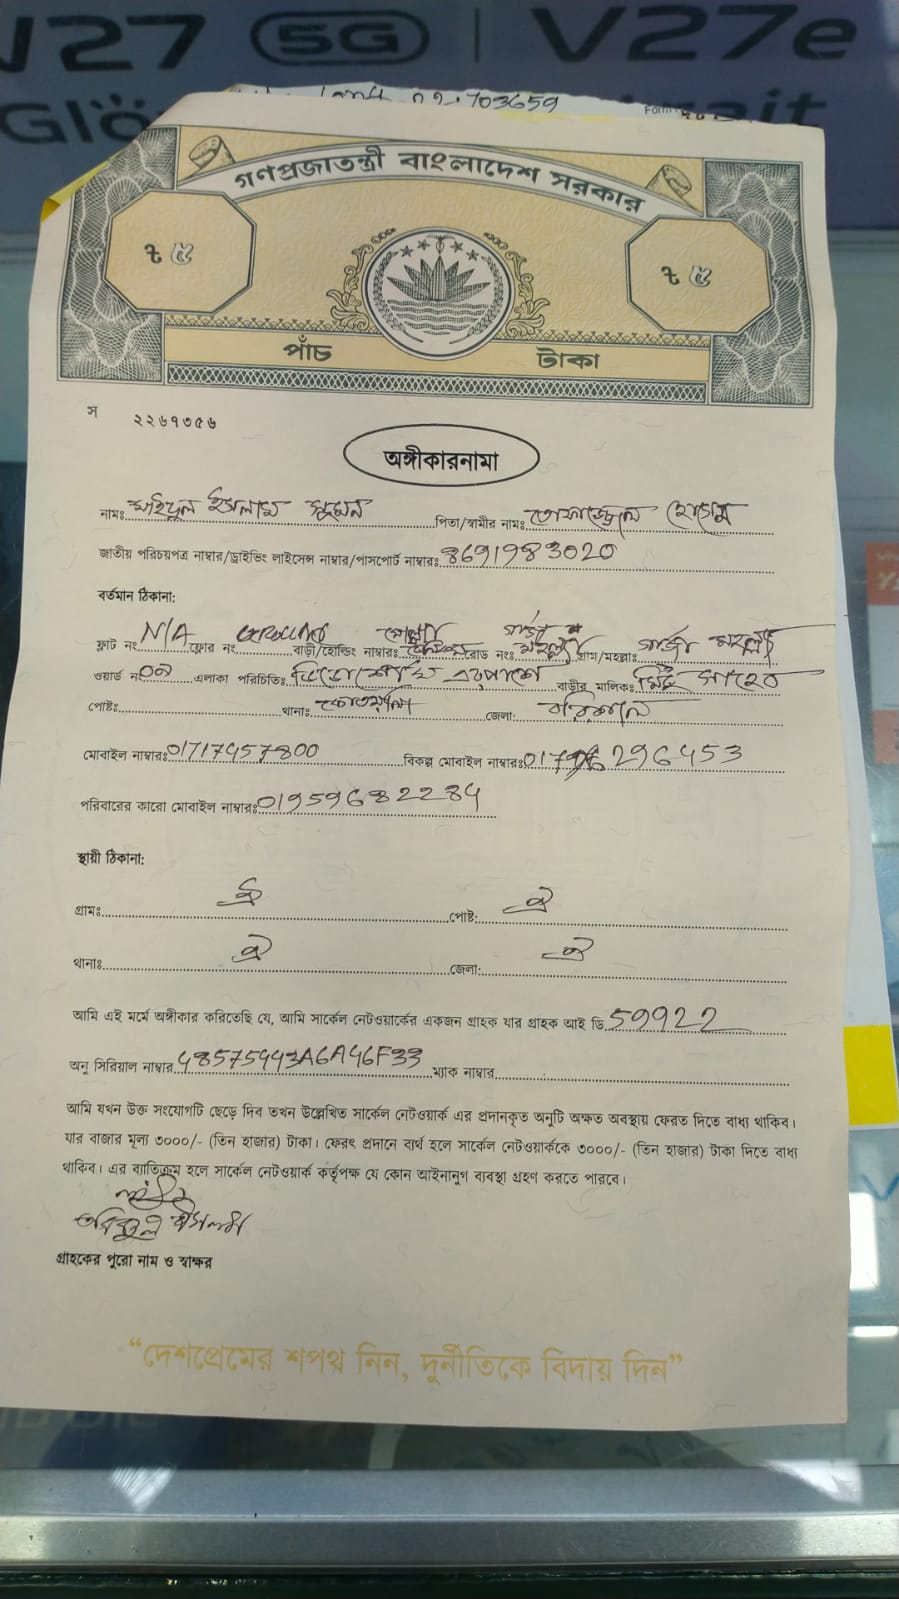 V27 5G | V27e
703659
গণপ্রজাতন্ত্রী বাংলাদেশ সরকার
৳ ৫ ৳ ৫
পাঁচ টাকা
স ২২৬৭৩৫৬
অঙ্গীকারনামা
নামঃ ইসলাম সুমন পিতা/স্বামীর নাম: তোফাজ্জেল হোসেন
জাতীয় পরিচয়পত্র নাম্বার/ড্রাইভিং লাইসেন্স নাম্বার/পাসপোর্ট নাম্বারঃ 8691983020
বর্তমান ঠিকানা:
ফ্লাট নং N/A ফ্লোর নং Ground বাড়ী/হোল্ডিং নাম্বারঃ রোড নংঃ গাজী মহল্লা গ্রাম/মহল্লাঃ গাজী মহল্লা
ওয়ার্ড নং এলাকা পরিচিতিঃ বাড়ীর মালিকঃ মিন্টু সাহেব
পোষ্টঃ থানাঃ কোতয়ালী জেলা: বরিশাল
মোবাইল নাম্বারঃ 01717457800 বিকল্প মোবাইল নাম্বারঃ 296453
পরিবারের কারো মোবাইল নাম্বারঃ 01959682284
স্থায়ী ঠিকানা:
গ্রামঃ ঐ পোষ্ট: ঐ
থানাঃ ঐ জেলা: ঐ
আমি এই মর্মে অঙ্গীকার করিতেছি যে, আমি সার্কেল নেটওয়ার্কের একজন গ্রাহক যার গ্রাহক আই ডি 59922
অনু সিরিয়াল নাম্বার 48575443A6A46F33 ম্যাক নাম্বার
আমি যখন উক্ত সংযোগটি ছেড়ে দিব তখন উল্লেখিত সার্কেল নেটওয়ার্ক এর প্রদানকৃত অনুটি অক্ষত অবস্থায় ফেরত দিতে বাধ্য থাকিব।
যার বাজার মূল্য ৩০০০/- (তিন হাজার) টাকা। ফেরৎ প্রদানে ব্যর্থ হলে সার্কেল নেটওয়ার্ককে ৩০০০/- (তিন হাজার) টাকা দিতে বাধ্য
থাকিব। এর ব্যতিক্রম হলে সার্কেল নেটওয়ার্ক কর্তৃপক্ষ যে কোন আইনানুগ ব্যবস্থা গ্রহণ করতে পারবে।
গ্রাহকের পুরো নাম ও স্বাক্ষর
“দেশপ্রেমের শপথ নিন, দুর্নীতিকে বিদায় দিন”